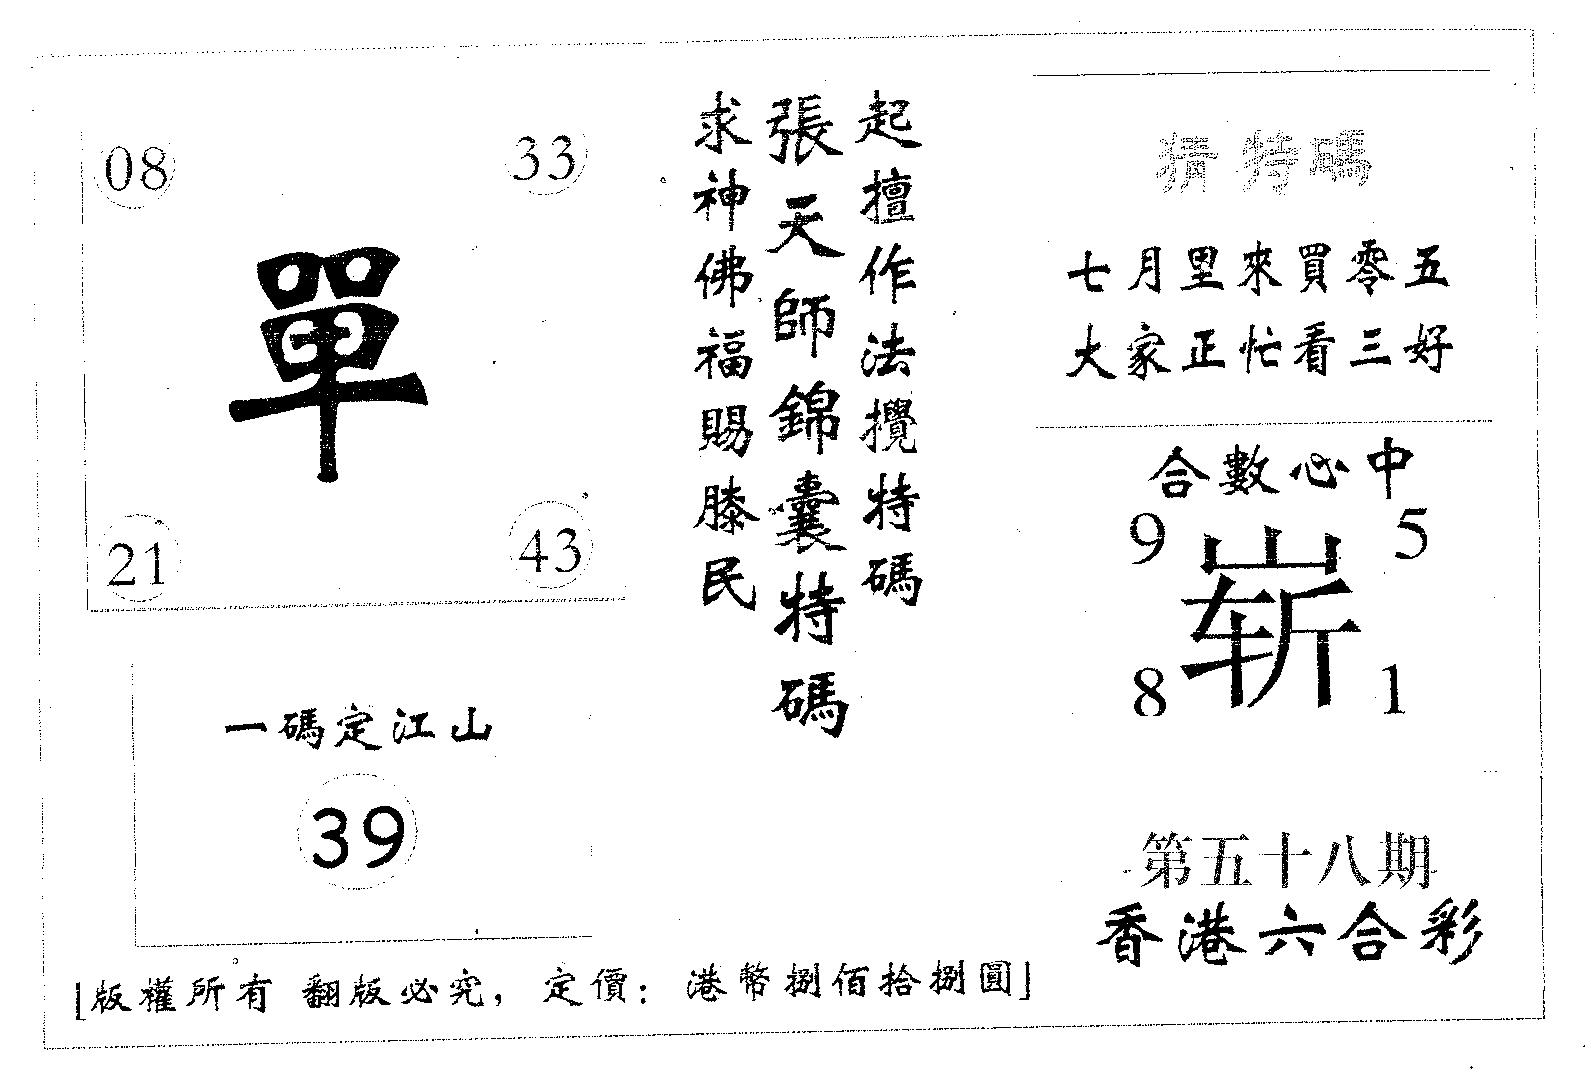 08 33
單
21 43
一碼定江山
39
起擅作法攪特碼
張天師錦囊特碼
求神佛福賜膝民
猜特碼
七月里來買零五
大家正忙看三好
合數必中
9 5
崭
8 1
第五十八期
香港六合彩
[版權所有 翻版必究，定價：港幣捌佰拾捌圓]